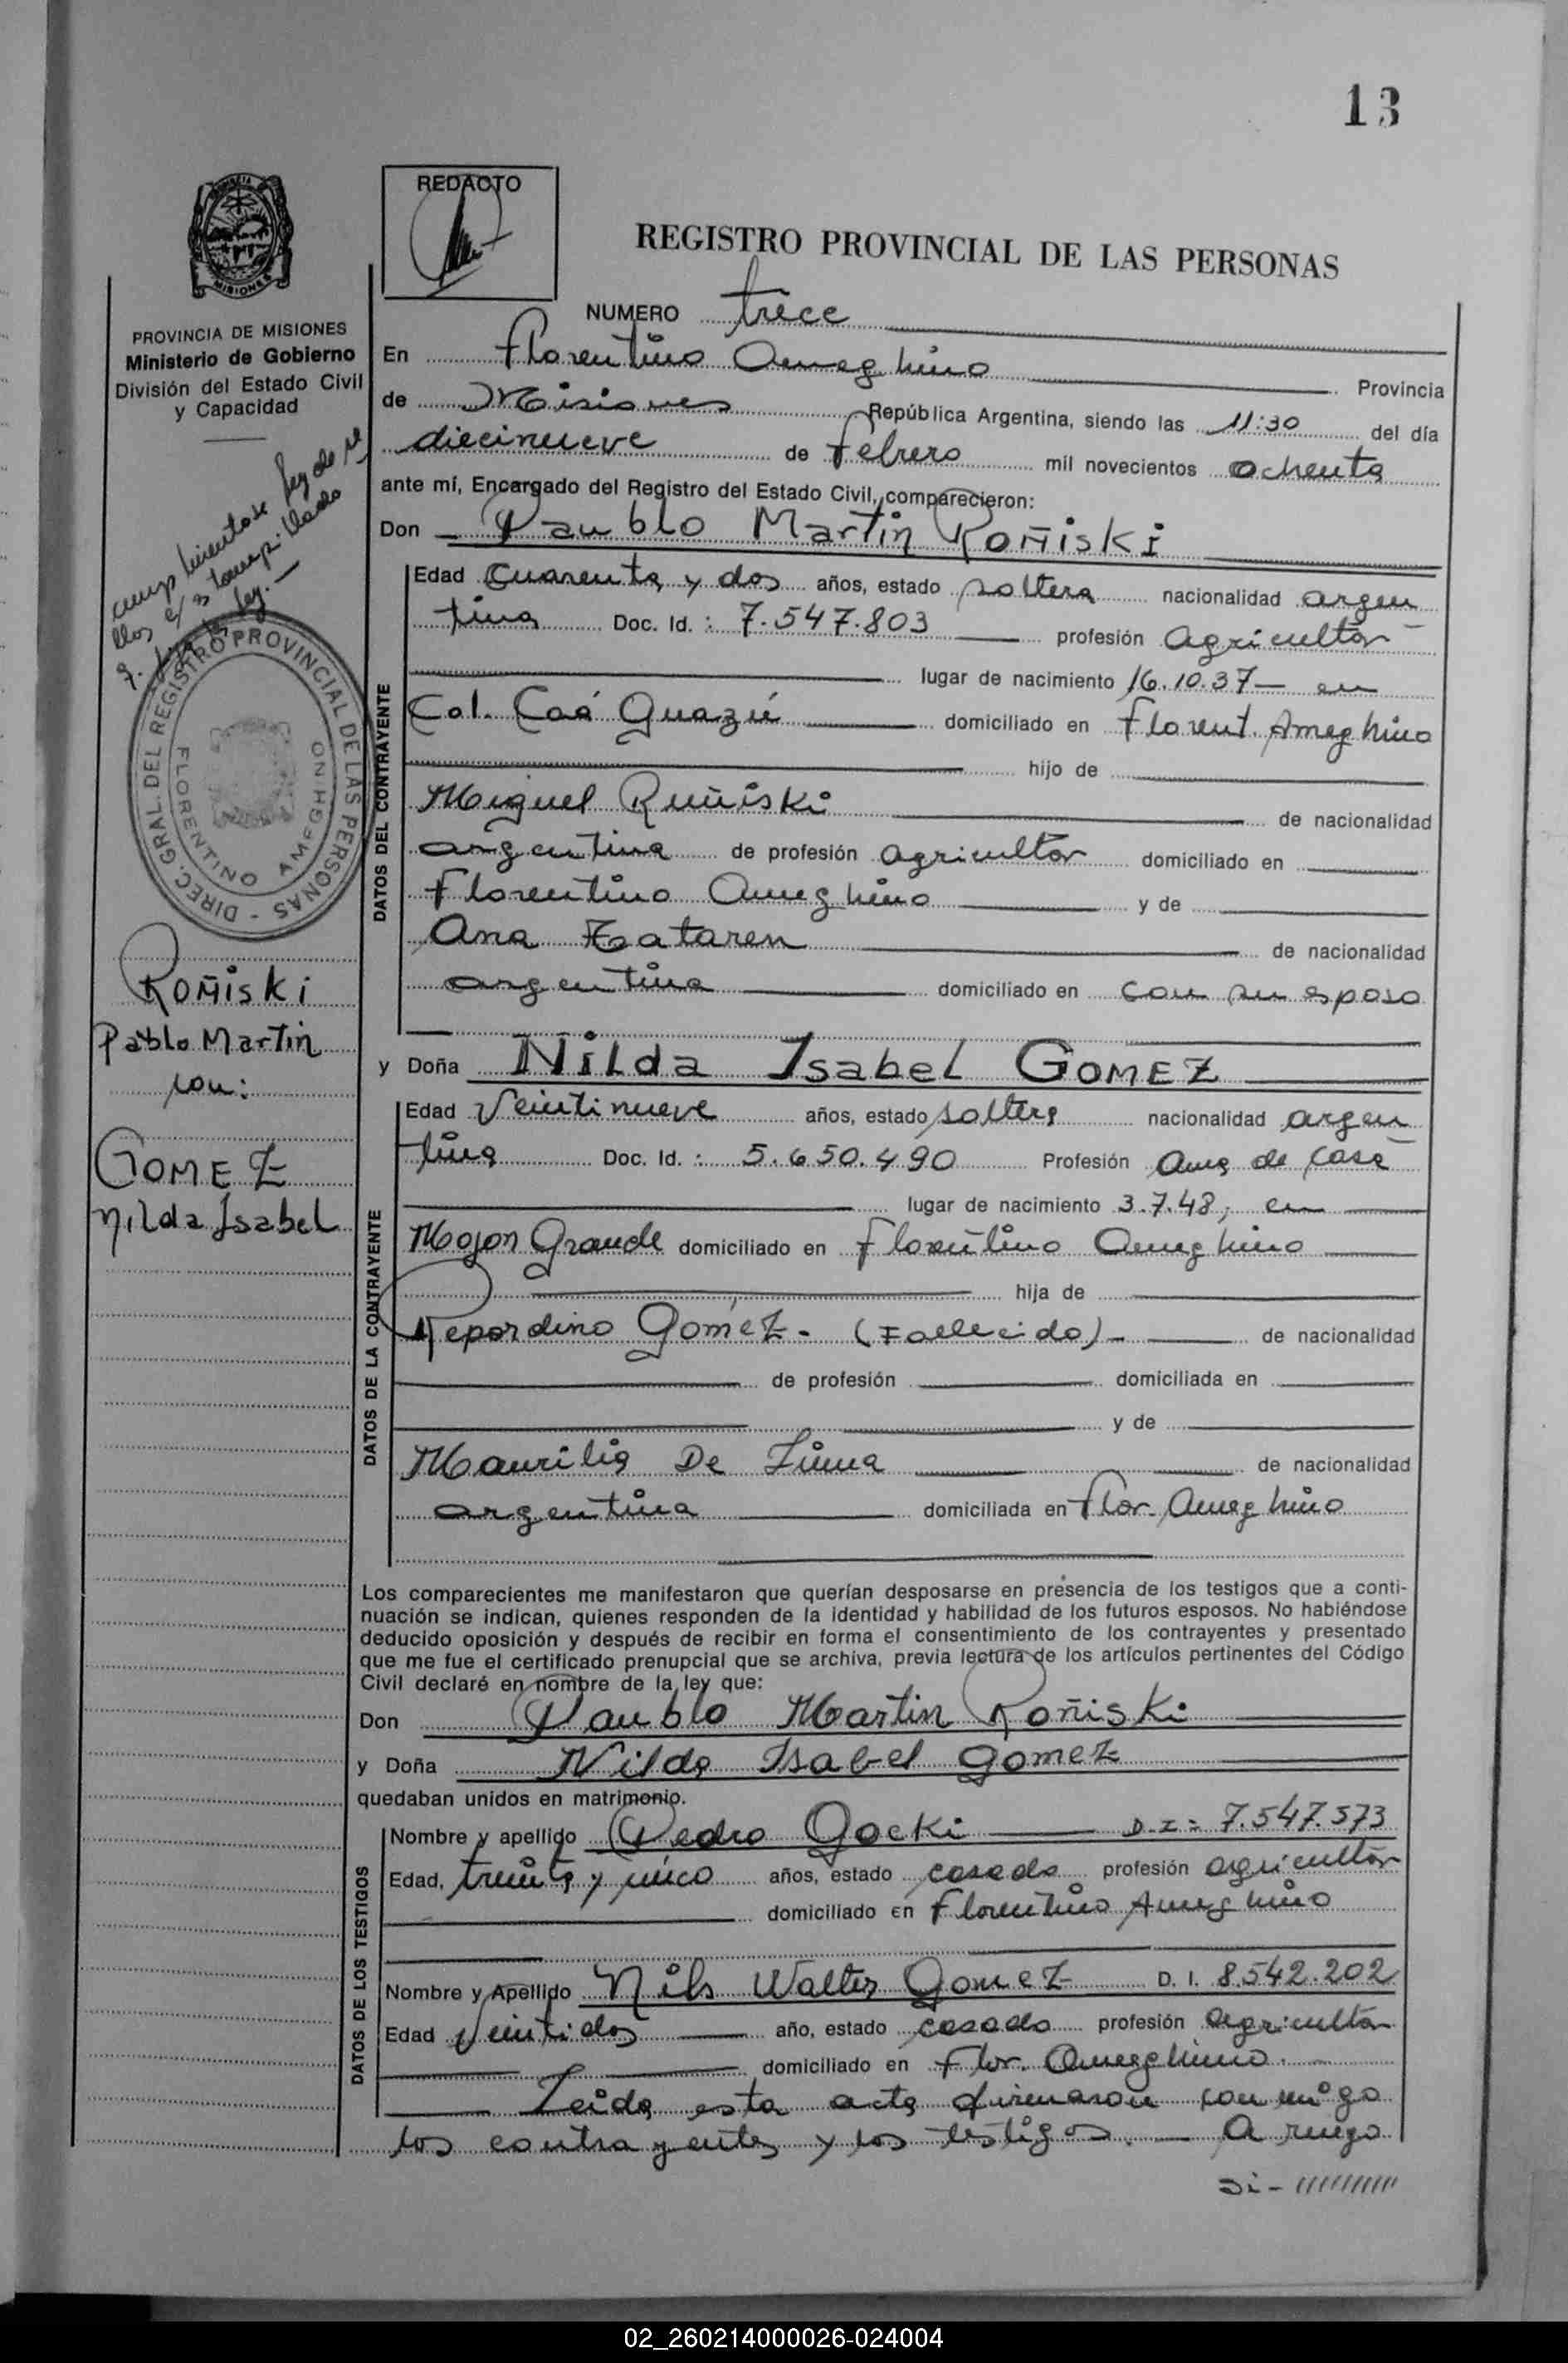 13
REDACTO
REGISTRO PROVINCIAL DE LAS PERSONAS
PROVINCIA DE MISIONES
Ministerio de Gobierno
División del Estado Civil
y Capacidad
NUMERO trece
En Florentino Ameghino Provincia
de Misiones República Argentina, siendo las 11:30 del día
diecinueve de febrero mil novecientos ochenta
ante mí, Encargado del Registro del Estado Civil, comparecieron:
Don Paublo Martin Roñiski
DATOS DEL CONTRAYENTE
Edad Cuarenta y dos años, estado soltera nacionalidad argen
tina Doc. Id.: 7.547.803 profesión Agricultor
lugar de nacimiento 16.10.37 en
Col. Caá Guazú domiciliado en Florent. Ameghino
hijo de
Miguel Ruñiski de nacionalidad
argentina de profesión agricultor domiciliado en
Florentino Ameghino y de
Ana Tataren de nacionalidad
argentina domiciliado en con su esposo
DIREC. GRAL. DEL REGISTRO PROVINCIAL DE LAS PERSONAS -
FLORENTINO AMEGHINO
Roñiski
Pablo Martin
con:
GOMEZ
Nilda Isabel
y Doña Nilda Isabel GOMEZ
DATOS DE LA CONTRAYENTE
Edad Veintinueve años, estado soltera nacionalidad argen
tina Doc. Id.: 5.650.490 Profesión Ama de casa
lugar de nacimiento 3.7.48, en
Mojon Grande domiciliado en Florentino Ameghino
hija de
Repordino Gomez. (Fallecido) de nacionalidad
de profesión domiciliada en
y de
Maurilia De Lima de nacionalidad
argentina domiciliada en Flor. Ameghino
Los comparecientes me manifestaron que querían desposarse en presencia de los testigos que a conti-
nuación se indican, quienes responden de la identidad y habilidad de los futuros esposos. No habiéndose
deducido oposición y después de recibir en forma el consentimiento de los contrayentes y presentado
que me fue el certificado prenupcial que se archiva, previa lectura de los artículos pertinentes del Código
Civil declaré en nombre de la ley que:
Don Paublo Martin Roñiski
y Doña Nilda Isabel Gomez
quedaban unidos en matrimonio.
DATOS DE LOS TESTIGOS
Nombre y apellido Pedro Gocki D.I: 7.547.573
Edad, treinta y años, estado casado profesión agricultor
domiciliado en Florentino Ameghino
Nombre y Apellido Nils Walter Gomez D. I. 8.542.202
Edad Veintidos año, estado casado profesión agricultor
domiciliado en Flor. Ameghino.
Leida esta acta firmaron conmigo
los contrayentes y los testigos. A ruego
si-
02_260214000026-024004